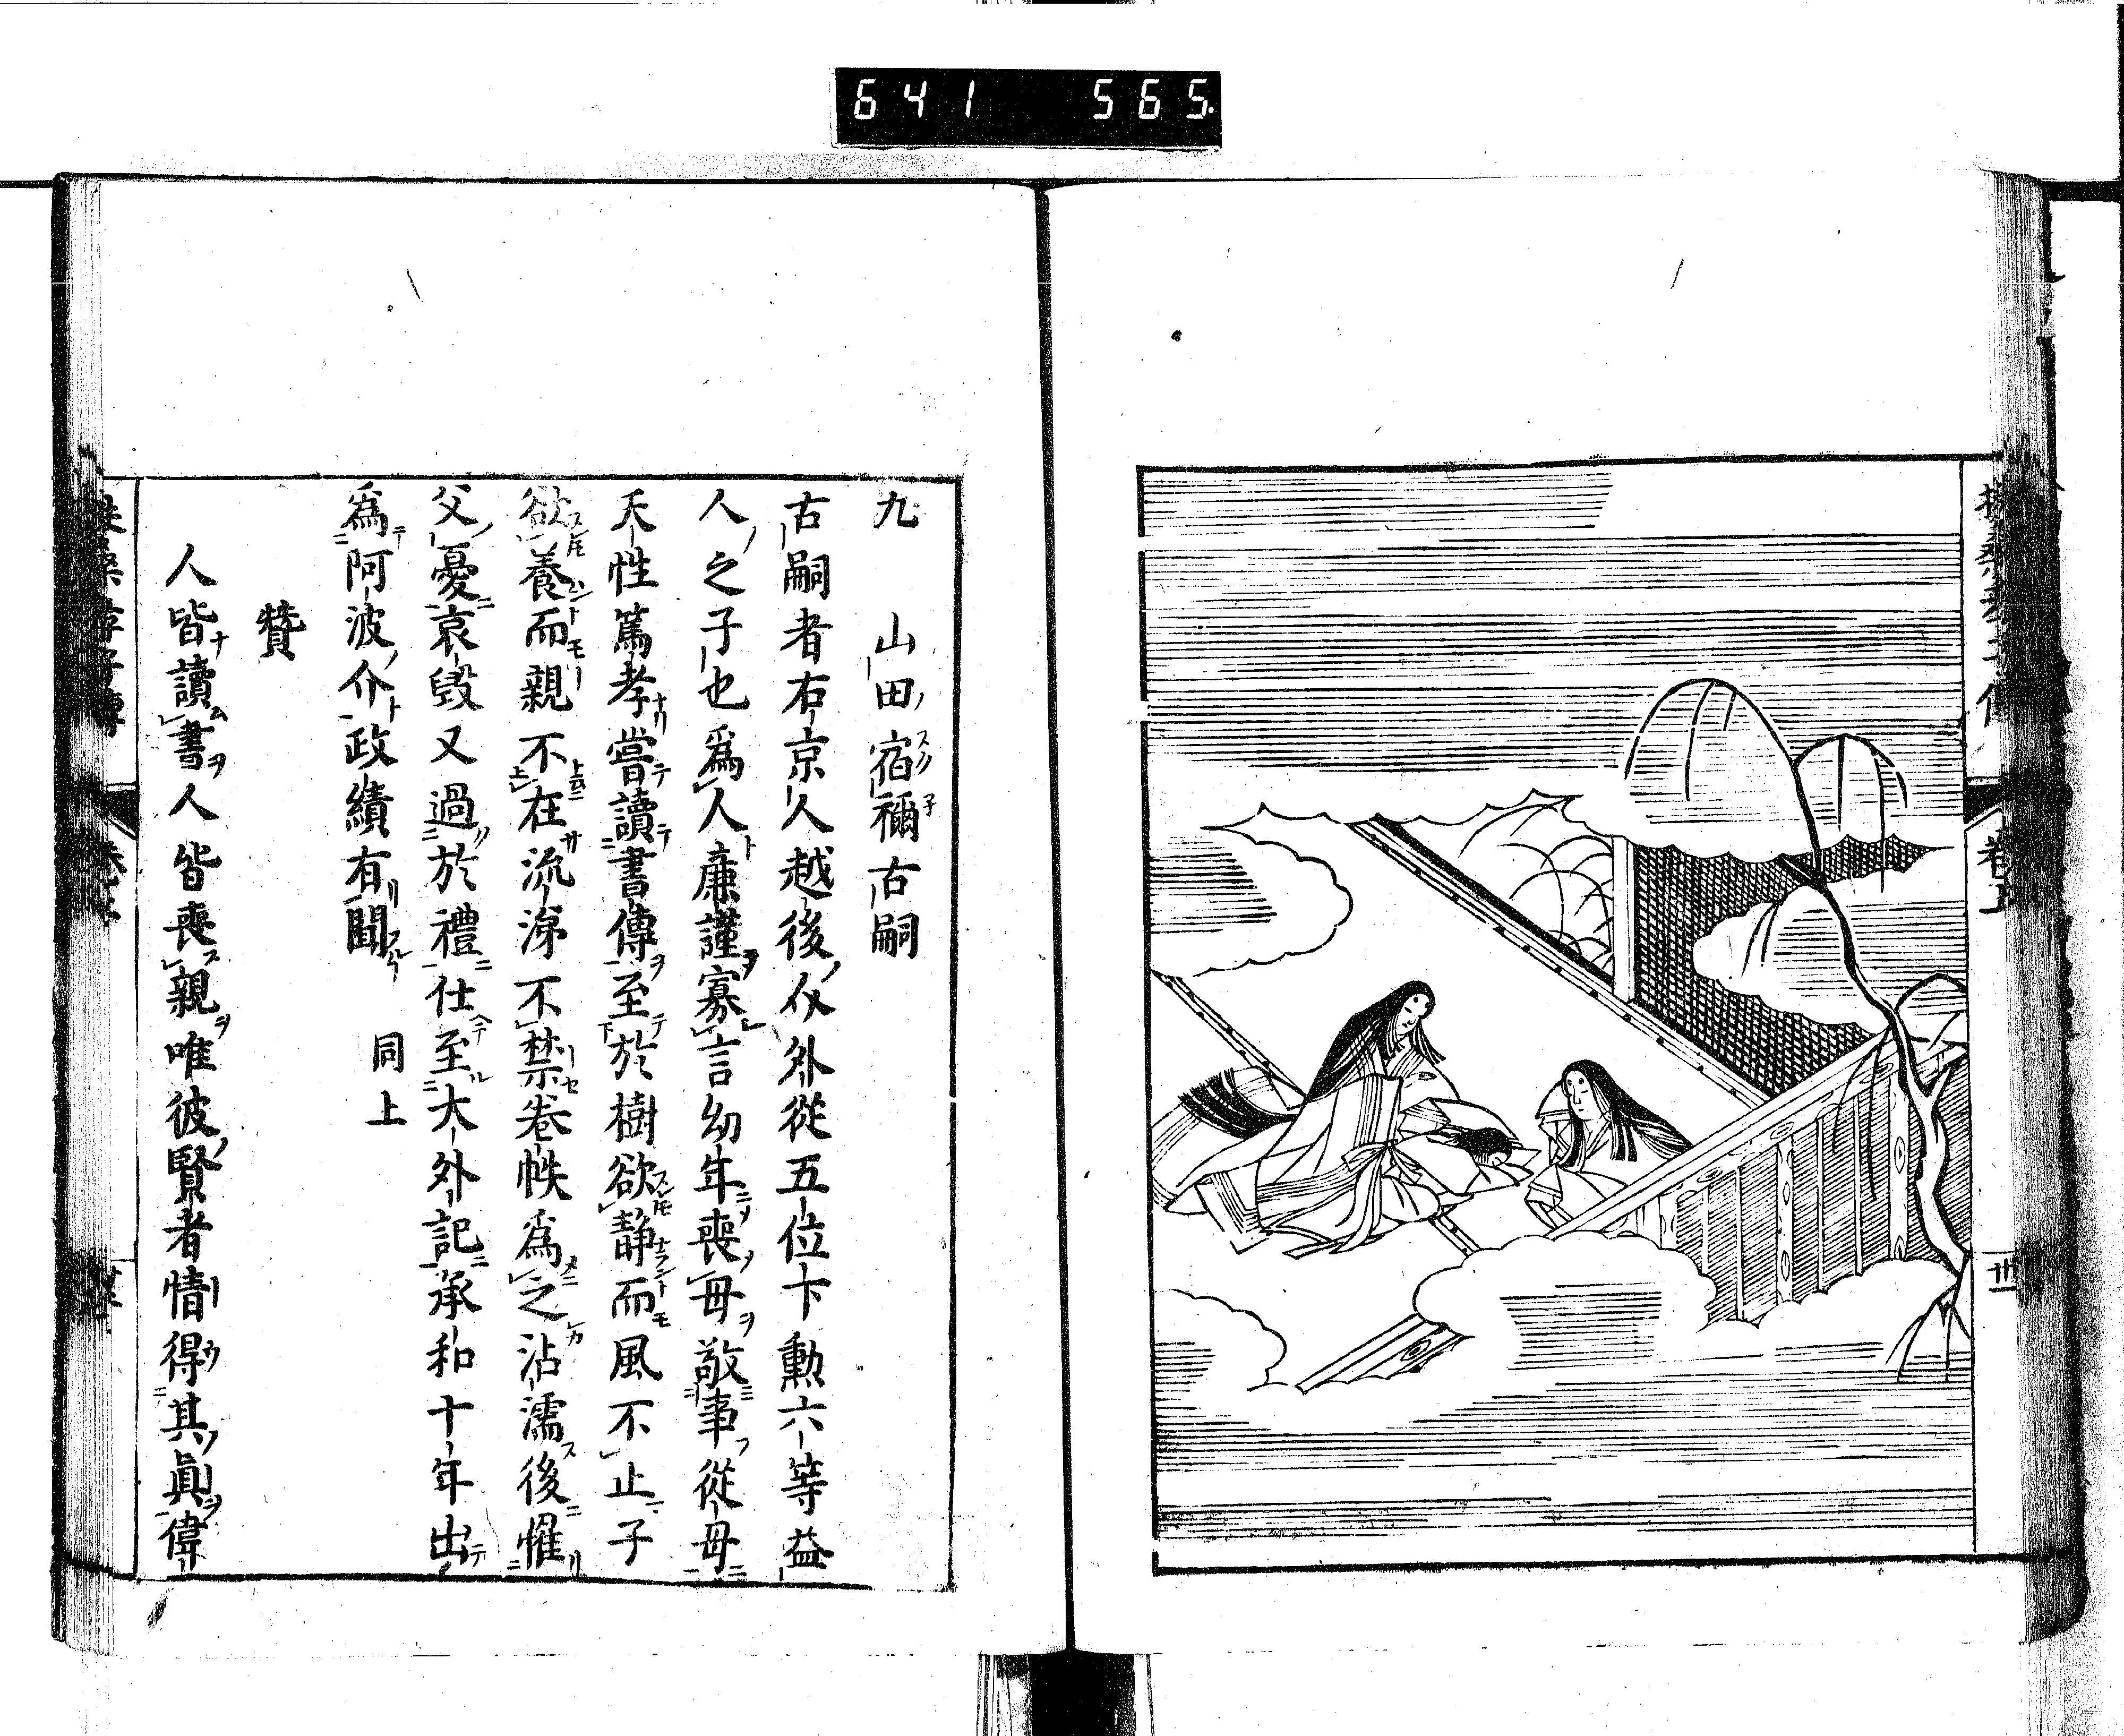 641 565
卷上
九 山田宿禰古嗣
古嗣者右京人越後介外從五位下勳六等益
人之子也爲人廉謹寡言幼年喪母敬事從母
天性篤孝嘗讀書傳至於樹欲靜而風不止子
欲養而親不在流涕不禁卷帙爲之沾濡後罹
父憂哀毀又過於禮仕至大外記承和十年出
爲阿波介政績有聞 同上
贊
人皆讀書人皆喪親唯彼賢者情得其眞偉